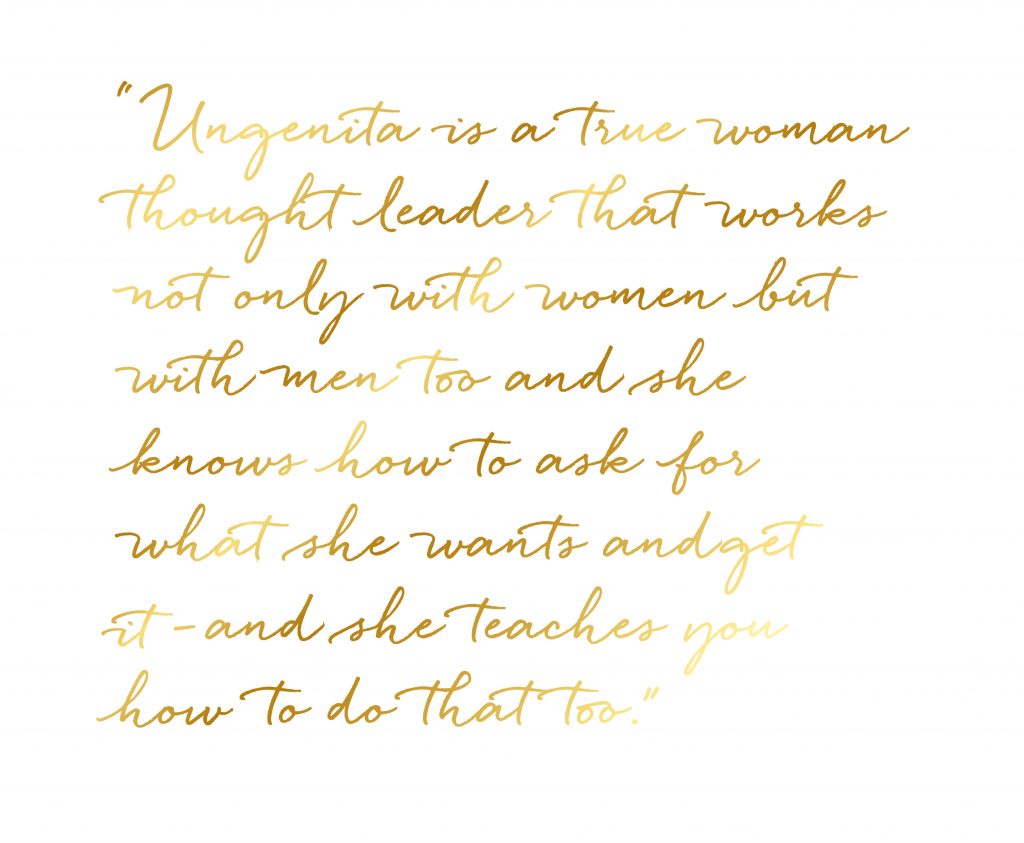 "Ungenita is a true woman
thought leader that works
not only with women but
with men too and she
knows how to ask for
what she wants and get
it - and she teaches you
how to do that too."